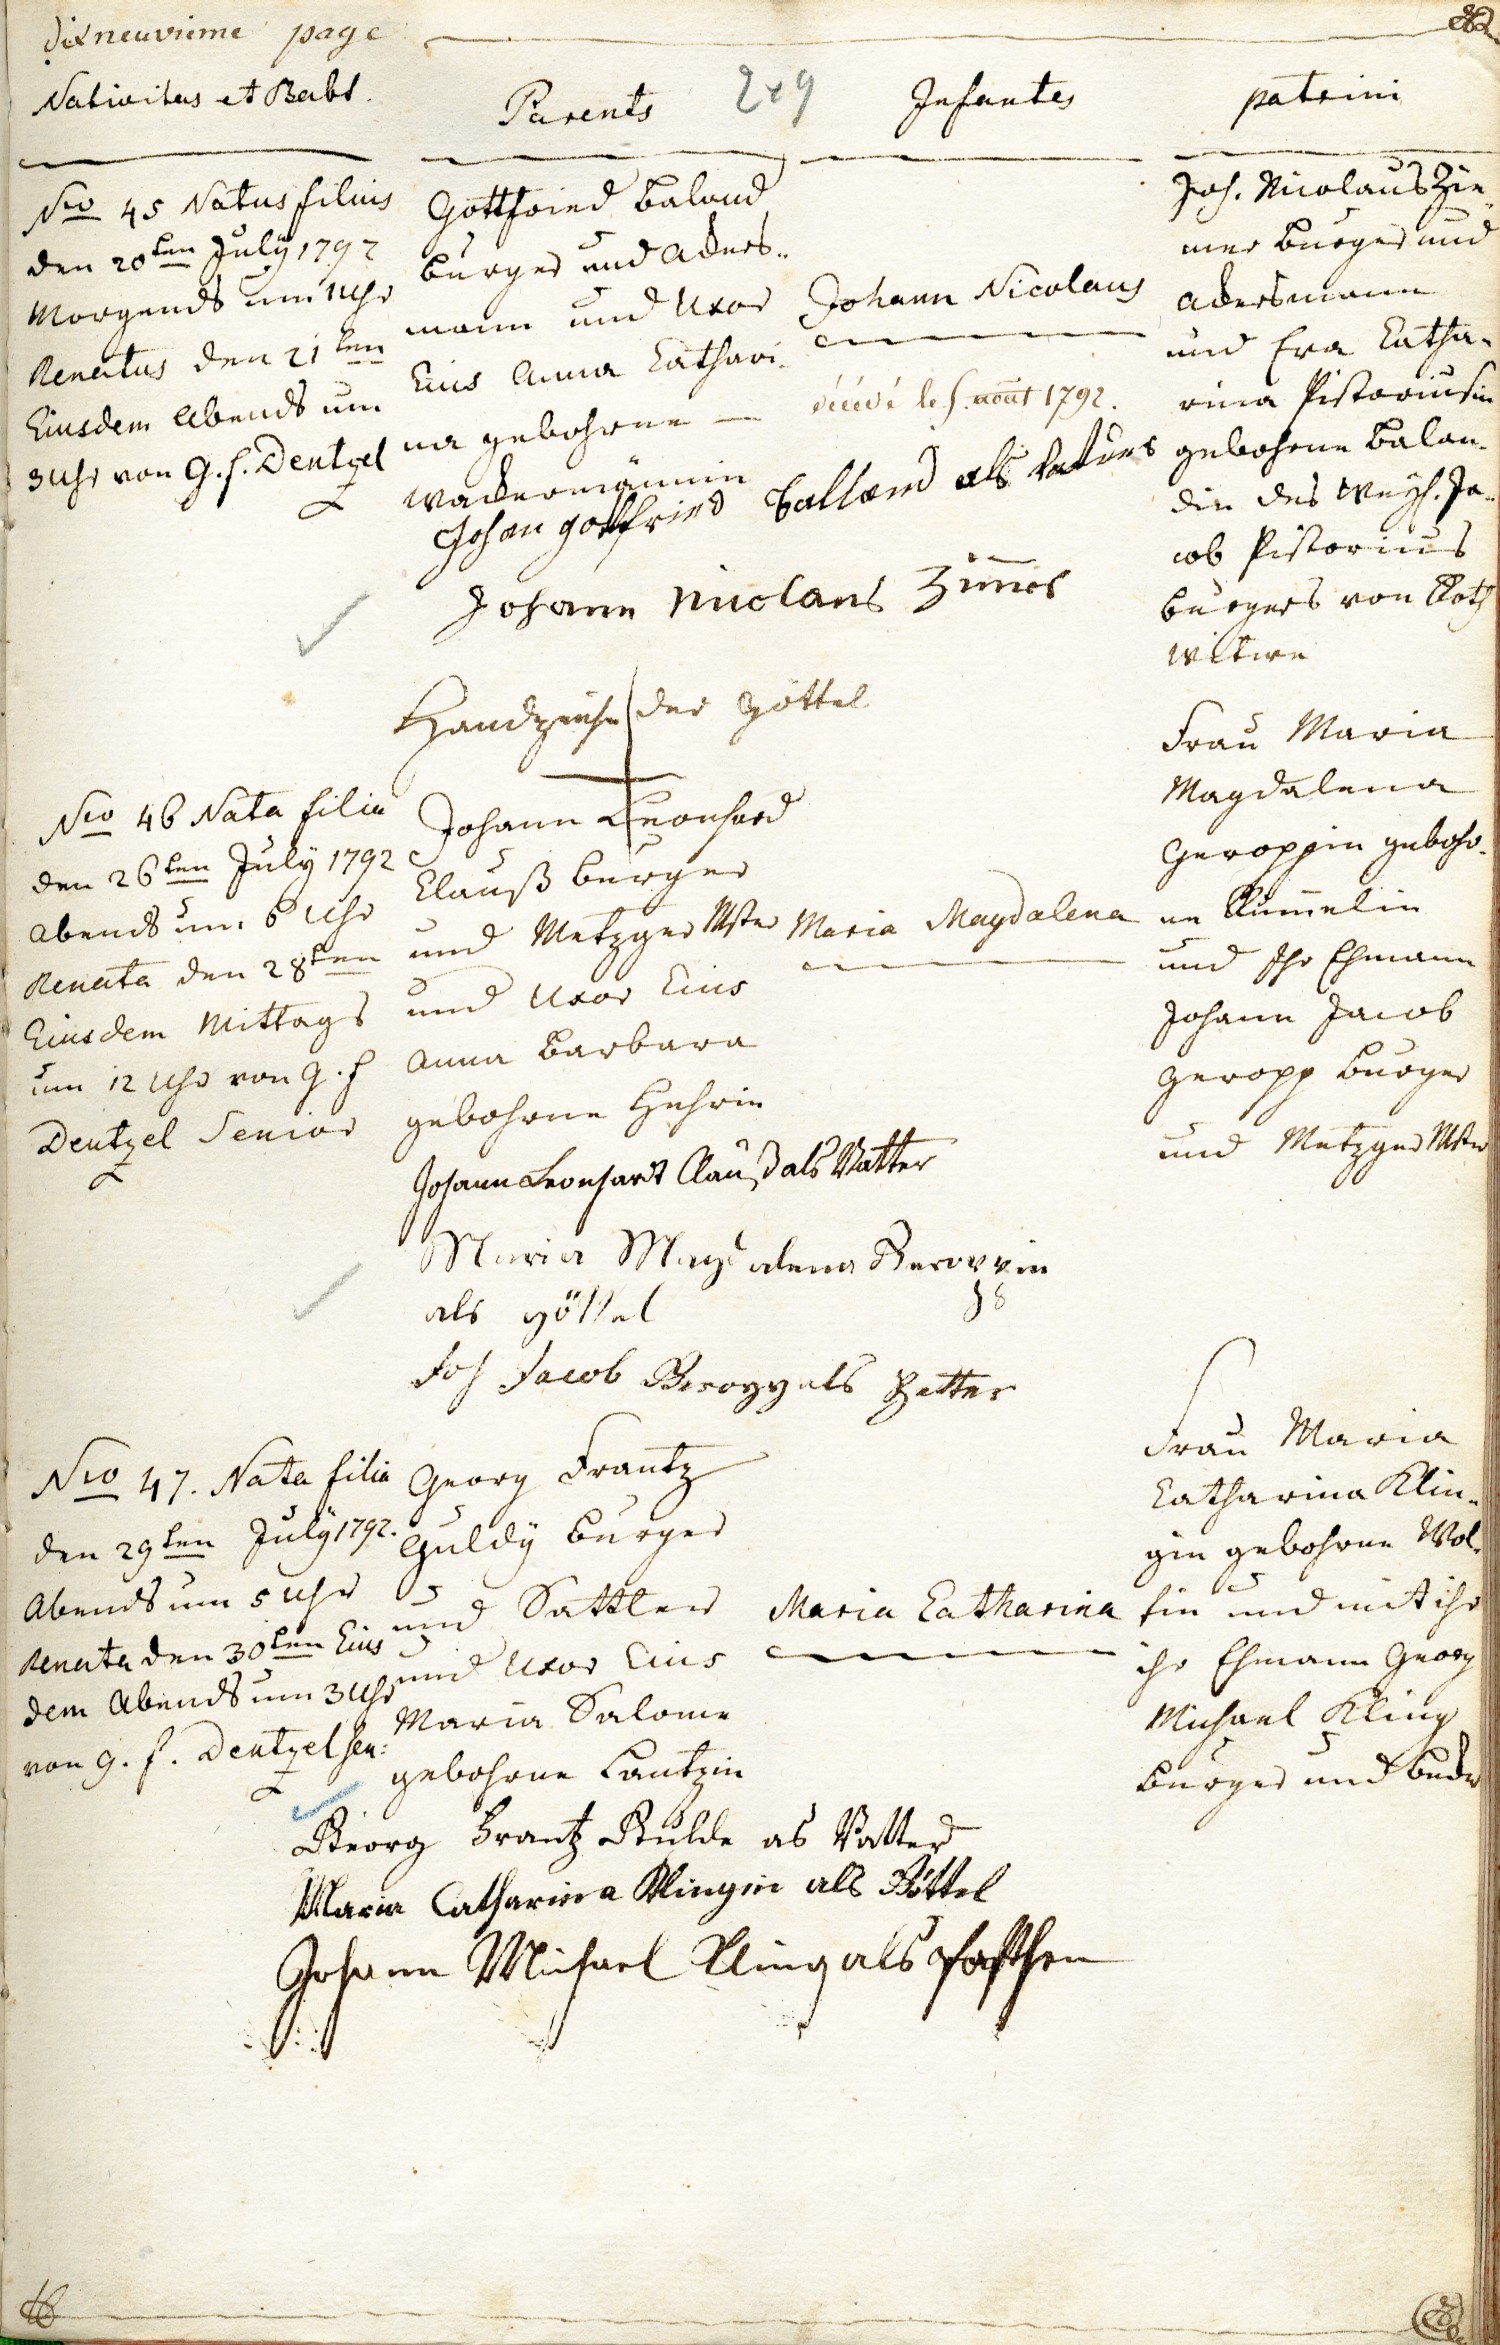 dixneuvieme page
Nativitas et Babt.
Parents
249
Infantes
patrini
Nro 45 Natus filius
den 20ten July 1792
Morgends um 1 Uhr
Renatus den 21ten
Eiusdem Abends um
3 Uhr von G. f. Dentzel
Gottfried Baland
burger und Ackers-
mann und Uxor
Eius Anna Cathari-
na gebohrne
Wackermännin
Johann Nicolaus
décédé le 5. aout 1792.
Joh. Nicolaus Zim-
mer burger und
Ackersmann
und Eva Catha-
rina Pistoriusin
gebohrne Balan-
din des Weyl. Ja-
cob Pistorius
burgers von Roth
Witwe
Johan gottfried Balland als Vatters
Johann Nicolaus Zimer
Handzeichen der Göttel
Nro 46 Nata filia
den 26ten July 1792
Abends um 6 Uhr
Renata den 28ten
Eiusdem Mittags
um 12 Uhr von G. f
Dentzel Senior
Johann Leonhard
Clauß burger
und Metzger Mster
und Uxor Eius
Anna Barbara
gebohrne Hehrin
Maria Magdalena
Frau Maria
Magdalena
Geroppin gebohr-
ne Kummelin
und Ihr Ehmann
Johann Jacob
Geropp burger
und Metzger Mster
Johann Leonhardt Clauß als Vatter
Maria Magdalena Geroppin
als göttel
Joh Jacob Geropp als Petter
Nro 47. Nata filia
den 29ten July 1792.
Abends um 5 Uhr
Renata den 30ten Eius
dem Abends um 3 Uhr
von G. f. Dentzel sen:
Georg Frantz
Guldy burger
und Sattler
und Uxor Eius
Maria Salome
gebohrne Lantzin
Maria Catharina
Frau Maria
Catharina Klin-
gin gebohrne Wol-
fin und mit ihr
ihr Ehmann Georg
Michael Kling
burger und beder
Georg Frantz Gulde as Vatter
Maria Catharina Klingin als Göttel
Johann Michael Kling als